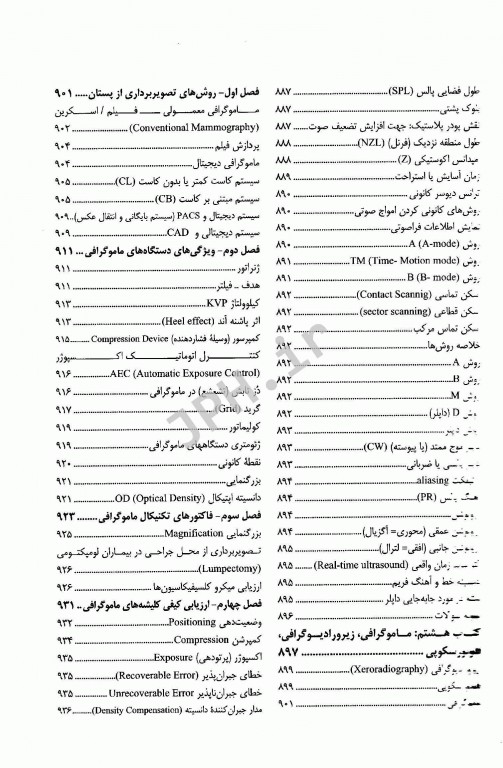 طول فضایی پالس (SPL)..........۸۸۷
بلوک پشتی..........۸۸۷
نقش پودر پلاستیک: جهت افزایش تضعیف صوت.......۸۸۷
طول منطقه نزدیک (فرنل) (NZL)..........۸۸۸
میدانس اکوستیکی (Z)..........۸۸۸
زمان آسایش یا استراحت..........۸۸۹
ترانس دیوسر کانونی..........۸۹۰
روش‌های کانونی کردن امواج صوتی..........۸۹۰
نمایش اطلاعات فراصوتی..........۸۹۰
روش A (A-mode)..........۸۹۰
روش TM (Time- Motion mode)..........۸۹۱
روش B (B- mode)..........۸۹۱
سکن تماسی (Contact Scannig)..........۸۹۲
سکن قطاعی (sector scanning)..........۸۹۲
سکن تماس مرکب..........۸۹۲
خلاصه روش‌ها..........۸۹۲
روش A..........۸۹۲
روش B..........۸۹۲
روش M..........۸۹۲
D (داپلر)..........۸۹۲
..........۸۹۳
موج ممتد (یا پیوسته) (CW)..........۸۹۳
یا ضربانی..........۸۹۳
aliasing..........۸۹۴
(PR)..........۸۹۴
..........۸۹۴
عمقی (محوری= اگزیال)..........۸۹۴
جانبی (افقی= لترال)..........۸۹۵
زمان واقعی (Real-time ultrasound)..........۸۹۵
خط و آهنگ فریم..........۸۹۵
مورد جابه‌جایی داپلر..........۸۹۵
..........۸۹۶
کتاب هشتم: ماموگرافی، زیرورادیوگرافی،
..........۸۹۷
(Xeroradiography)..........۸۹۹
..........۸۹۹
..........۹۰۱
فصل اول- روش‌های تصویربرداری از پستان.....۹۰۱
ماموگرافی معمولی – فیلم / اسکرین
(Conventional Mammography)..........۹۰۲
پردازش فیلم..........۹۰۴
ماموگرافی دیجیتال..........۹۰۴
سیستم کاست کمتر یا بدون کاست (CL)..........۹۰۵
سیستم مبتنی بر کاست (CB)..........۹۰۵
سیستم دیجیتال و PACS (سیستم بایگانی و انتقال عکس)..۹۰۹
سیستم دیجیتالی و CAD..........۹۰۹
فصل دوم- ویژگی‌های دستگاه‌های ماموگرافی...۹۱۱
ژنراتور..........۹۱۱
هدف - فیلتر..........۹۱۱
کیلوولتاژ KVP..........۹۱۳
اثر پاشنه آند (Heel effect)..........۹۱۳
کمپرسور (وسیلهٔ فشاردهنده) Compression Device.......۹۱۵
کنترل اتوماتیک اکسپوژر
AEC (Automatic Exposure Control)..........۹۱۶
دُز تابش (تشعشع) در ماموگرافی..........۹۱۶
گرید (Grid)..........۹۱۷
کولیماتور..........۹۱۹
ژئومتری دستگاههای ماموگرافی..........۹۱۹
نقطهٔ کانونی..........۹۲۰
بزرگنمایی..........۹۲۱
دانسیته اپتیکال OD (Optical Density)..........۹۲۱
فصل سوم- فاکتورهای تکنیکال ماموگرافی........۹۲۳
بزرگنمایی Magnification..........۹۲۵
تصویربرداری از محل جراحی در بیماران لومپکتومی
(Lumpectomy)..........۹۲۶
ارزیابی میکرو کلسیفیکاسیون‌ها..........۹۲۶
فصل چهارم- ارزیابی کیفی کلیشه‌های ماموگرافی..۹۳۱
وضعیت‌دهی Positioning..........۹۳۲
کمپرشن Compression..........۹۳۴
اکسپوژر (پرتودهی) Exposure..........۹۳۵
خطای جبران‌پذیر (Recoverable Error)..........۹۳۵
خطای جبران‌ناپذیر Unrecoverable Error..........۹۳۵
مدار جبران‌کنندهٔ دانسیته (Density Compensation)..........۹۳۶
JPH.ir